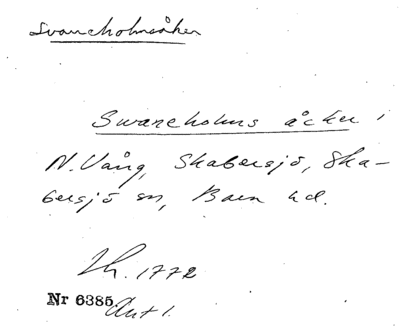 Svaneholmsåker
Swaneholms åcker i
N. Vång, Skabersjö, Ska-
bersjö sn, Bara hd.
Lh. 1772
Nr 6385 Akt 1.